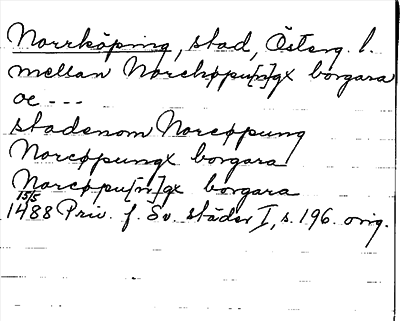 Norrköping, stad, Österg. l.
mellan Norchøpu[n]gx borgara
oc ---
stadenom Norcøpung
Norcøpungx borgara
Norcøpu[n]gx borgara
15/5
1488 Priv. f. Sv. städer I, s. 196. orig.